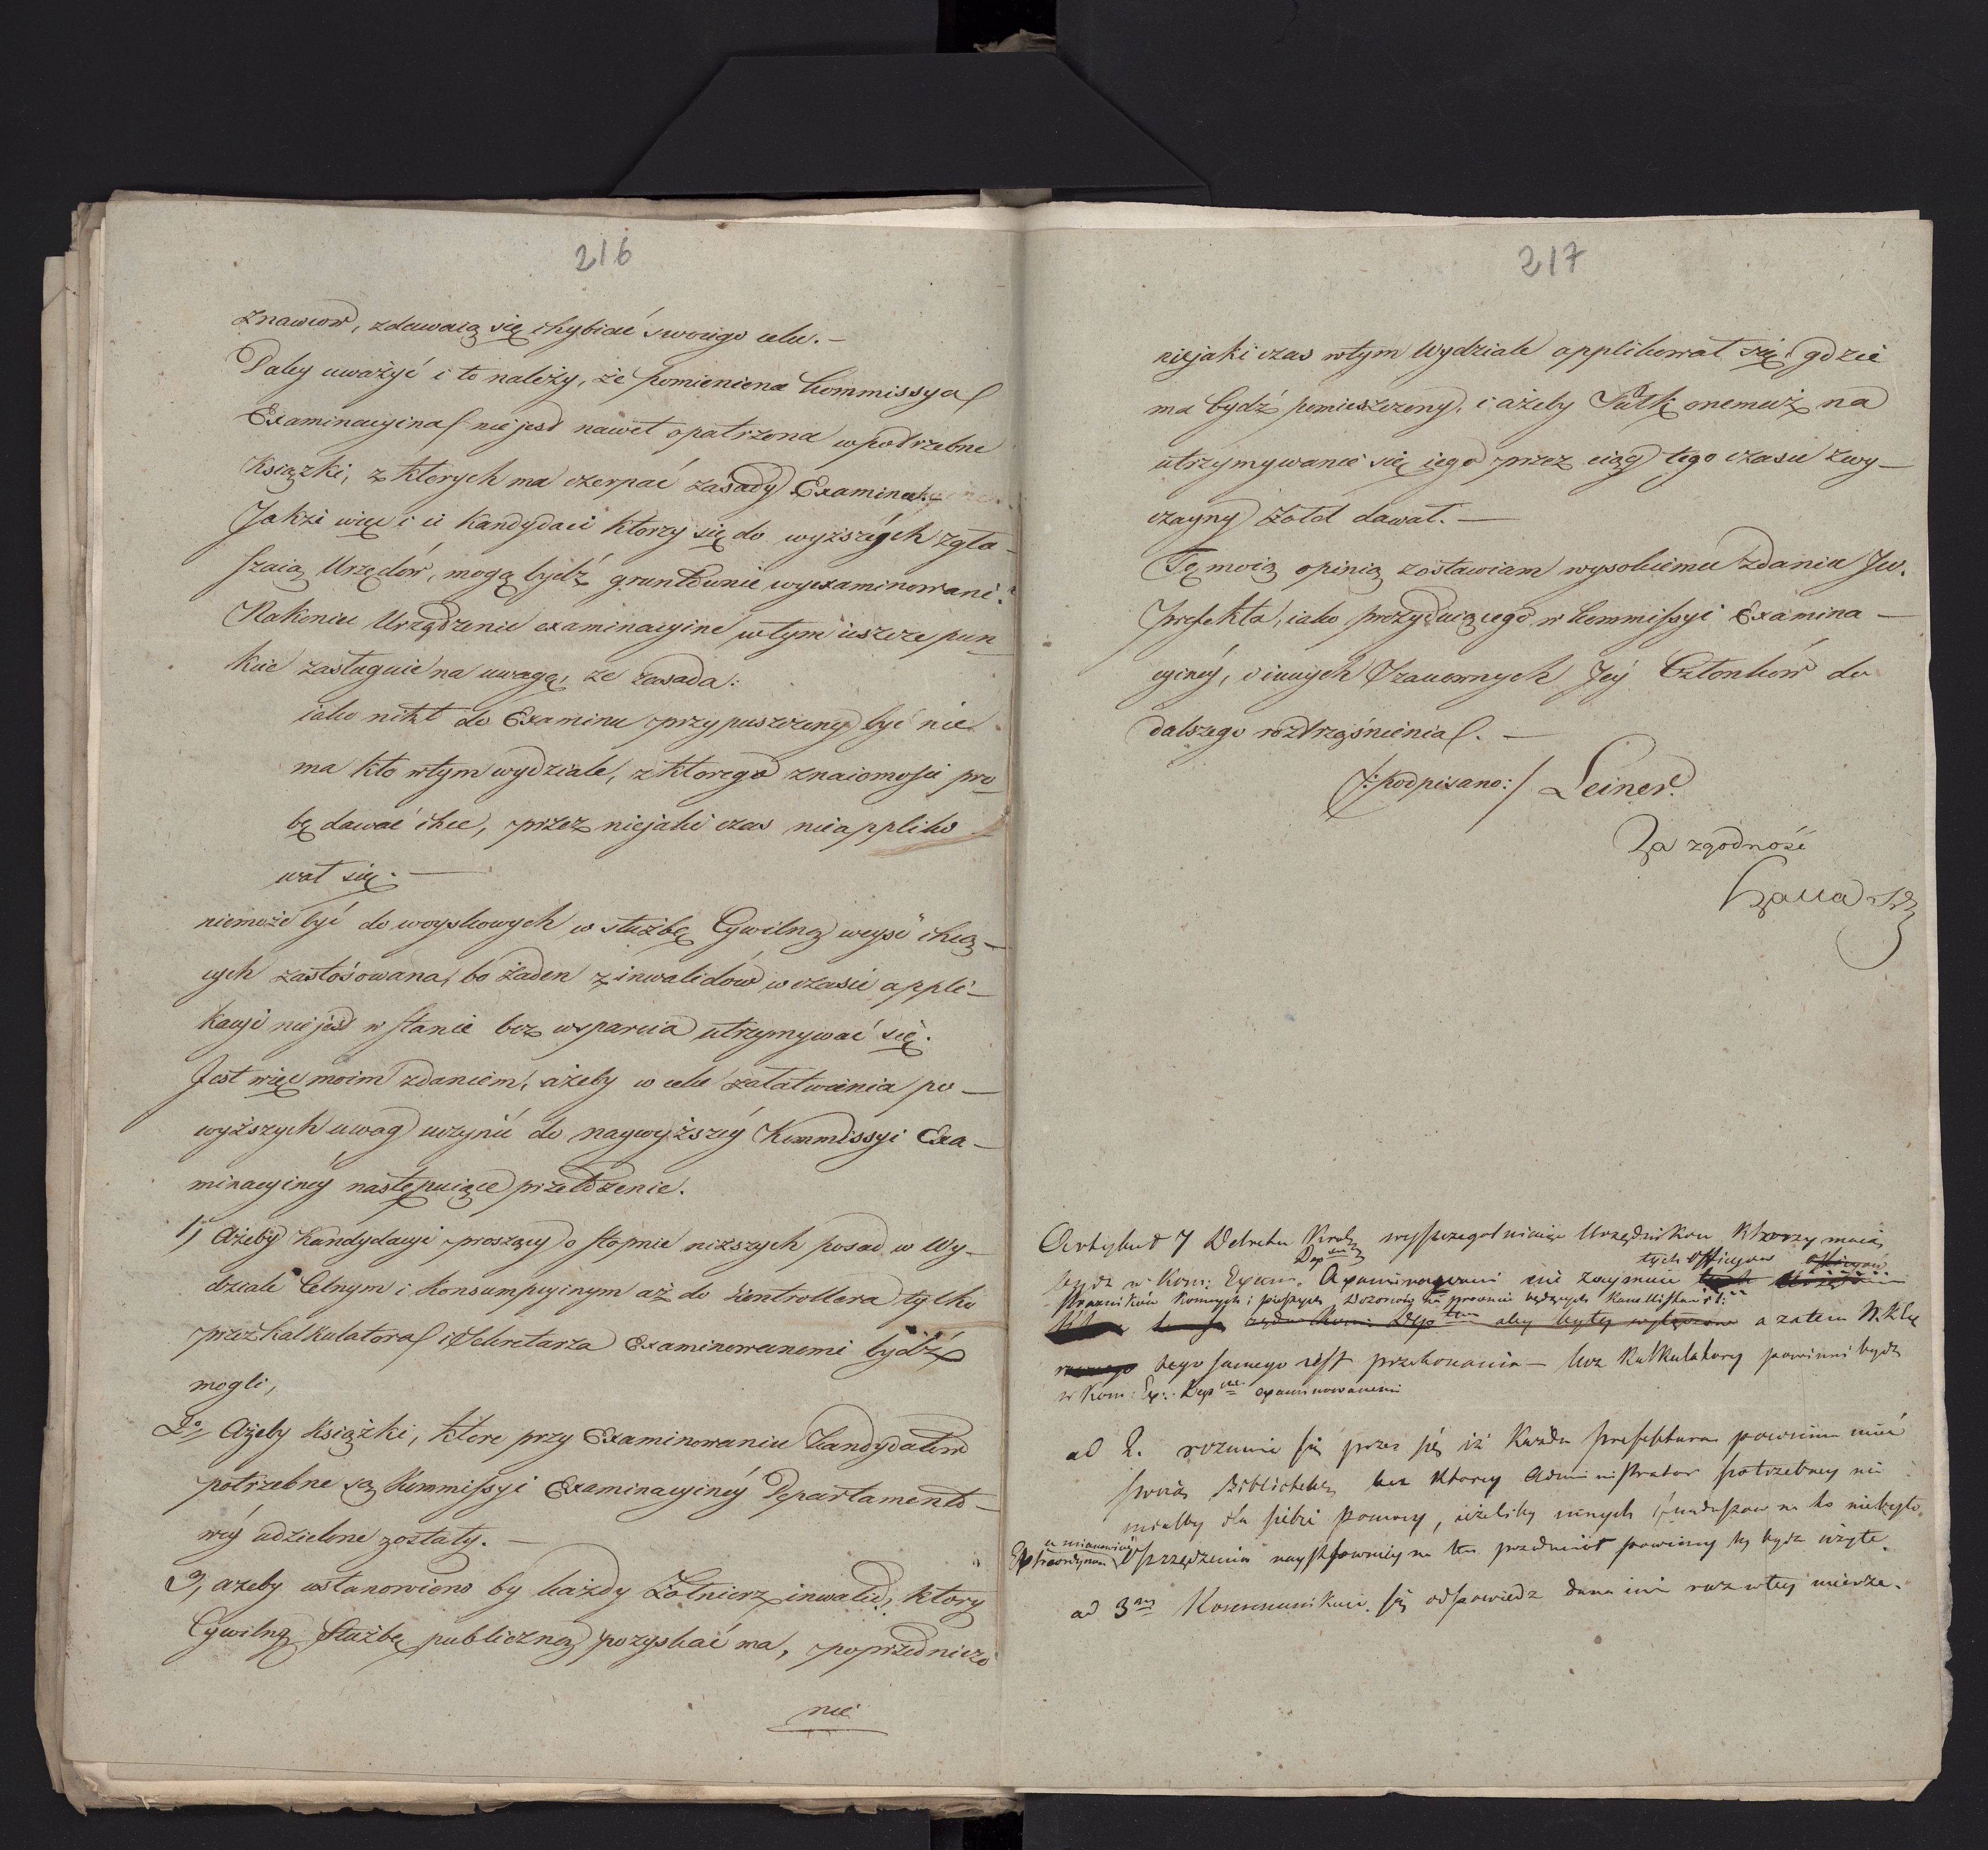 216
znawcow, zdawaią się chybiać swoiego celu. —
Daley uważyć i to należy, że pomieniona Kommissya
Examinacyina nie jest nawet opatrzona w potrzebne
Książki, z ktorych ma czerpać zasady Examinu. —
Jakże więc i ci Kandydaci ktorzy się do wyższych zgła-
szaią Urzędów, mogą bydź gruntownie wyexaminowani?
Nakoniec Urządzenie examinacyine w tym ieszcze pun-
kcie zasługuie na uwagę, że zasada:
iako nikt do Examinu przypuszczony być nie
ma kto w tym wydziale, z ktorego znaiomości pro-
bę dawać chce, przez niejaki czas nie appliko-
wał się. —
niemoże być do woyskowych w służbę Cywilną weyść chcą-
cych zastosowana, bo żaden z inwalidów w czasie appli-
kacyi nie jest w stanie bez wsparcia utrzymywać się.
Jest więc moim zdaniem, ażeby w celu załatwienia po-
wyższych uwag uczynić do naywyższéy Kommissyi Exa-
minacyinéy następuiące przełożenie.
1, Ażeby Kandydaci proszący o stopnie niższych posad w Wy-
dziale Celnym i Konsumpcyinym aż do Kontrollera tylko
przez Kalkulatora i Sekretarza Examinowanemi bydź
mogli,
2o, Ażeby Książki, ktore przy Examinowaniu Kandydatów
potrzebne są Kommissyi Examinacyinéy Departamento-
wéy udzielone zostały. —
3, ażeby ustanowiono by każdy Żołnierz inwalid, ktory
Cywilną Służbę publiczną pozyskać ma, poprzedniczo
nie
217
niejaki czas w tym Wydziale applikował się, gdzie
ma bydź pomieszczony, i ażeby Pułk onemuż na
utrzymywanie się iego przez ciąg tego czasu zwy-
czayny żołd dawał. —
Tę moią opinią zostawiam wysokiemu zdaniu Jw.
Prefekta, iako prezyduiącego w Kommissyi Examina-
cyinéy, i innych Szanownych Jéy Członków do
dalszego roztrząśnienia. —
/:podpisano:/ Leiner.
Za zgodność
Artykuł 7 Dekretu Krol: wyszczegolniaiąc Urzędnikow Ktorzy maią
bydź w Kom: Exam. Dep Examinowani nie zaymuie tych Officyow
Strażników Konnych i pieszych Dozorcow
a zatem
tego samego iest przekonania — lecz Kalkulatory powinni bydz
w Kom: Ex: Dep examinowanemi
ad 2. rozumie się przez się iż Każda Prefektura powinna mieć
swoią Bibliotekę, bez ktorey Administrator potrzebney nie
miałby dla siebie pomocy, ieżeliby innych funduszow na to niebyło
a mianowicie
Extraordynar: Urządzenia na ten przedmiot powinny bydz użyte.
ad 3 Kommunikuie się odpowiedz dana iuż raz w tey mierze.